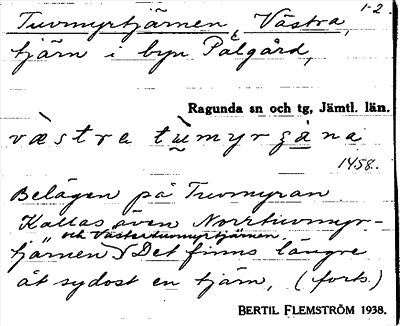 1-2.
Tuvmyrtjärnen, Västra,
tjärn i byn Pålgård,
Ragunda sn och tg, Jämtl. län.
vàstra tùmyrgåna
1458.
Belägen på Tuvmyran
Kallas även Norrtuvmyr-
tjärnen och Västertuvmyrtjärnen. Det finns längre
åt sydost en tjärn, (forts.)
BERTIL FLEMSTRÖM 1938.